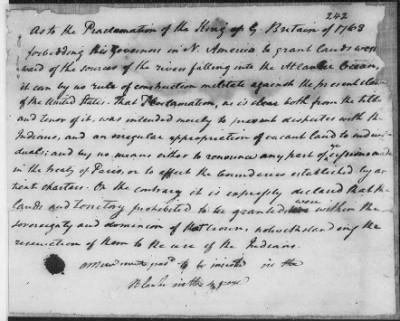 242
As to the Proclamation of the King of G. Britain of 1763
forbidding his Governors in N. America to grant lands west
ward of the sources of the rivers falling into the Atlantic Ocean,
it can by no rule of construction militate against the present claim
of the United States. That Proclamation, as is clear both from the title
and tenor of it, was intended merely to prevent disputes with the
Indians, and an irregular appropriation of vacant land to indivi
duals; and by no means either to renounce any part of ye cessions made
in the treaty of Paris, or to affect the boundaries established by an
tient charters. On the contrary it is expressly declared that the
lands and territory prohibited to be granted were within the
sovereignty and dominion of that crown, notwithstanding the
reservation of them to the use of the Indians.
to be in the
in the